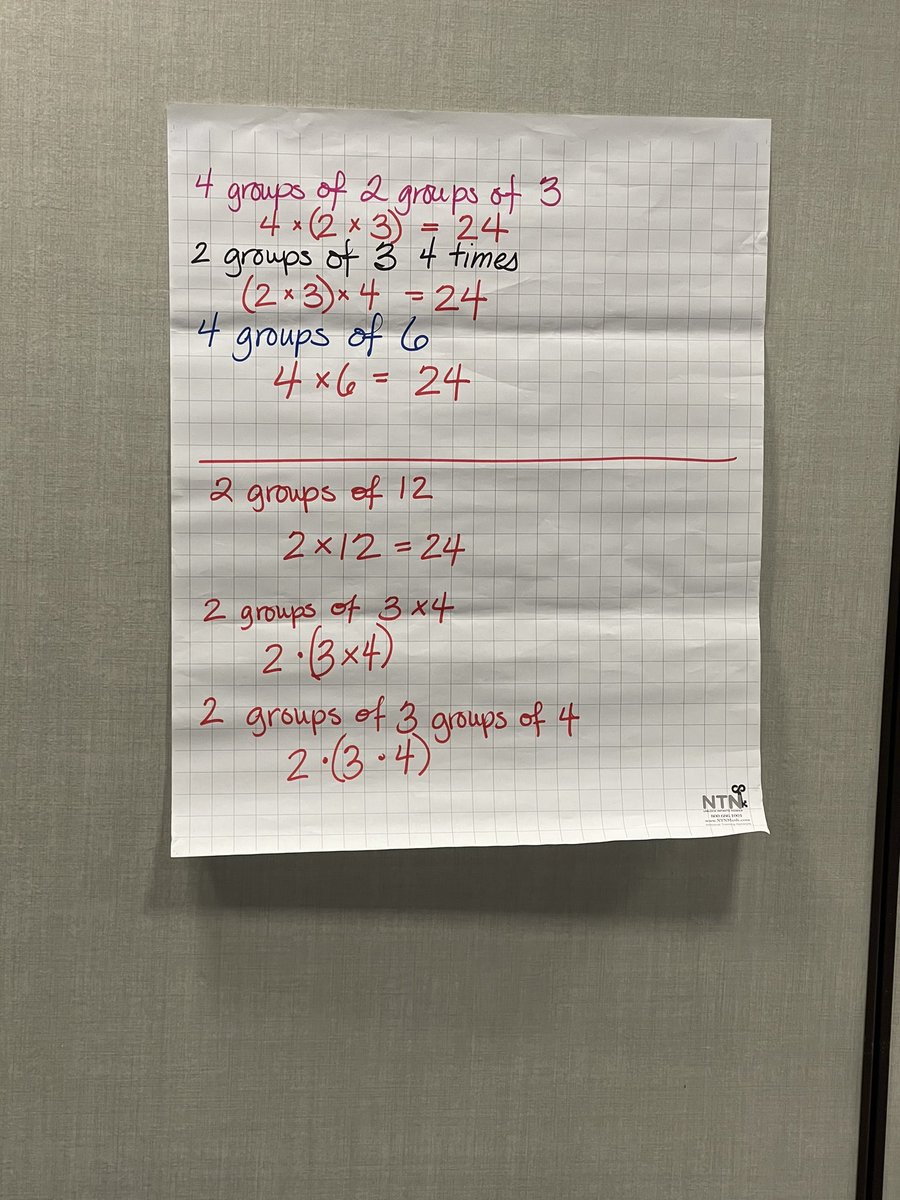 4 groups of 2 groups of 3
4 × (2 × 3) = 24
2 groups of 3 4 times
(2 × 3) × 4 = 24
4 groups of 6
4 × 6 = 24
2 groups of 12
2 × 12 = 24
2 groups of 3 × 4
2 · (3 × 4)
2 groups of 3 groups of 4
2 · (3 · 4)
NTN